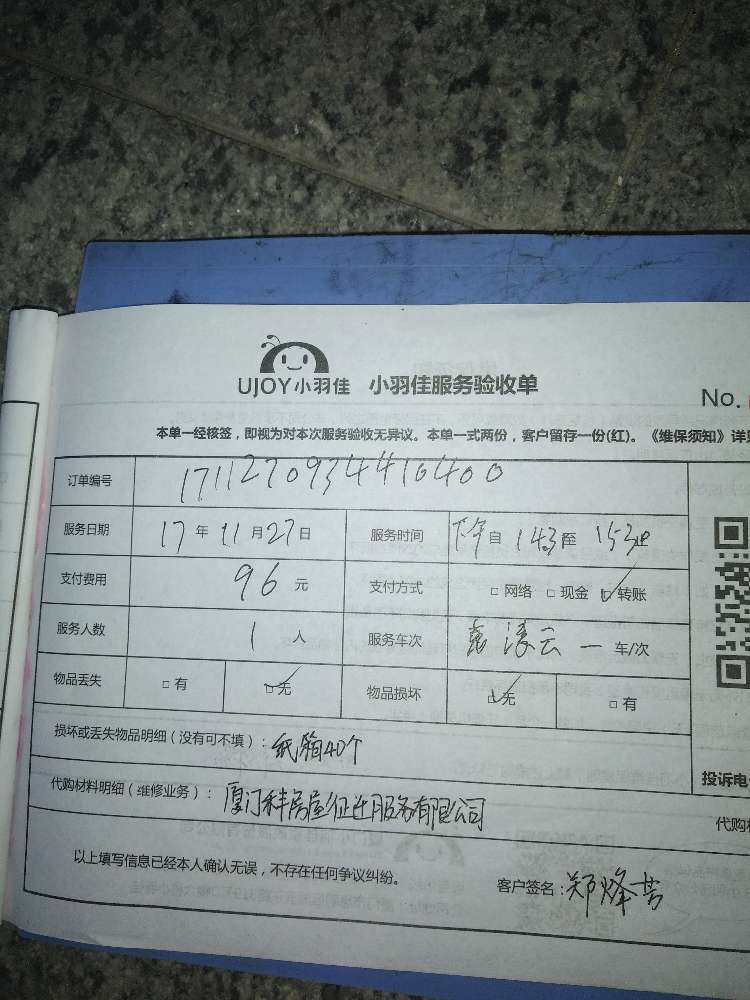 UJOY小羽佳 小羽佳服务验收单
No.
本单一经核签，即视为对本次服务验收无异议。本单一式两份，客户留存一份(红)。《维保须知》详
订单编号 1711270934416400
服务日期 17年11月27日 服务时间 下午自 143至 153
支付费用 96元 支付方式 □网络 □现金 ☑转账
服务人数 1人 服务车次 云一车/次
物品丢失 □有 ☑无 物品损坏 ☑无 □有
损坏或丢失物品明细（没有可填）：纸箱40个
投诉电
代购材料明细（维修业务）：厦门禾丰房屋征迁服务有限公司
代购
以上填写信息已经本人确认无误，不存在任何争议纠纷。 客户签名：郑烽芸